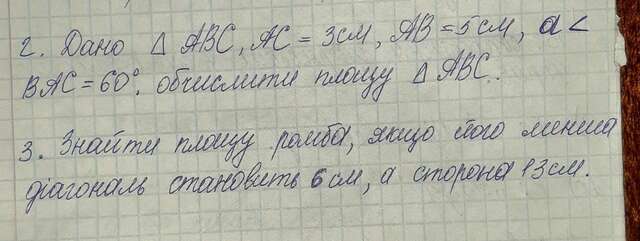 2. Дано △ ABC, AC = 3см, AB = 5см, a <
BAC = 60°. обчислити площу △ ABC.
3. Знайти площу ромба, якщо його менша
діагональ становить 6 см, а сторона 13 см.